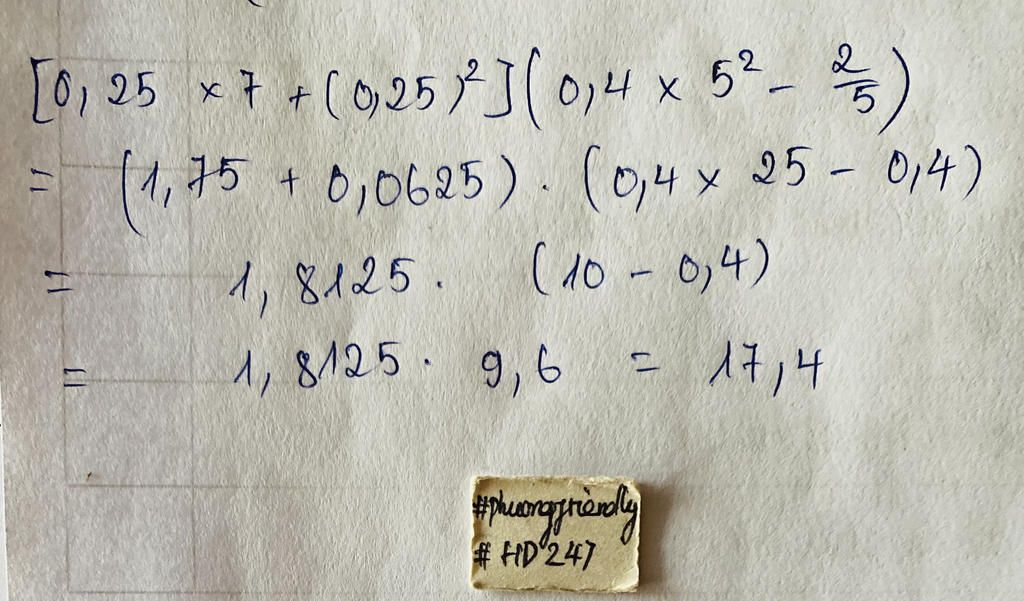 [0,25 × 7 + (0,25)²](0,4 × 5² - 2/5)
= (1,75 + 0,0625) . (0,4 × 25 - 0,4)
= 1,8125 . (10 - 0,4)
= 1,8125 . 9,6 = 17,4
#phuongfriendly
# HD 247